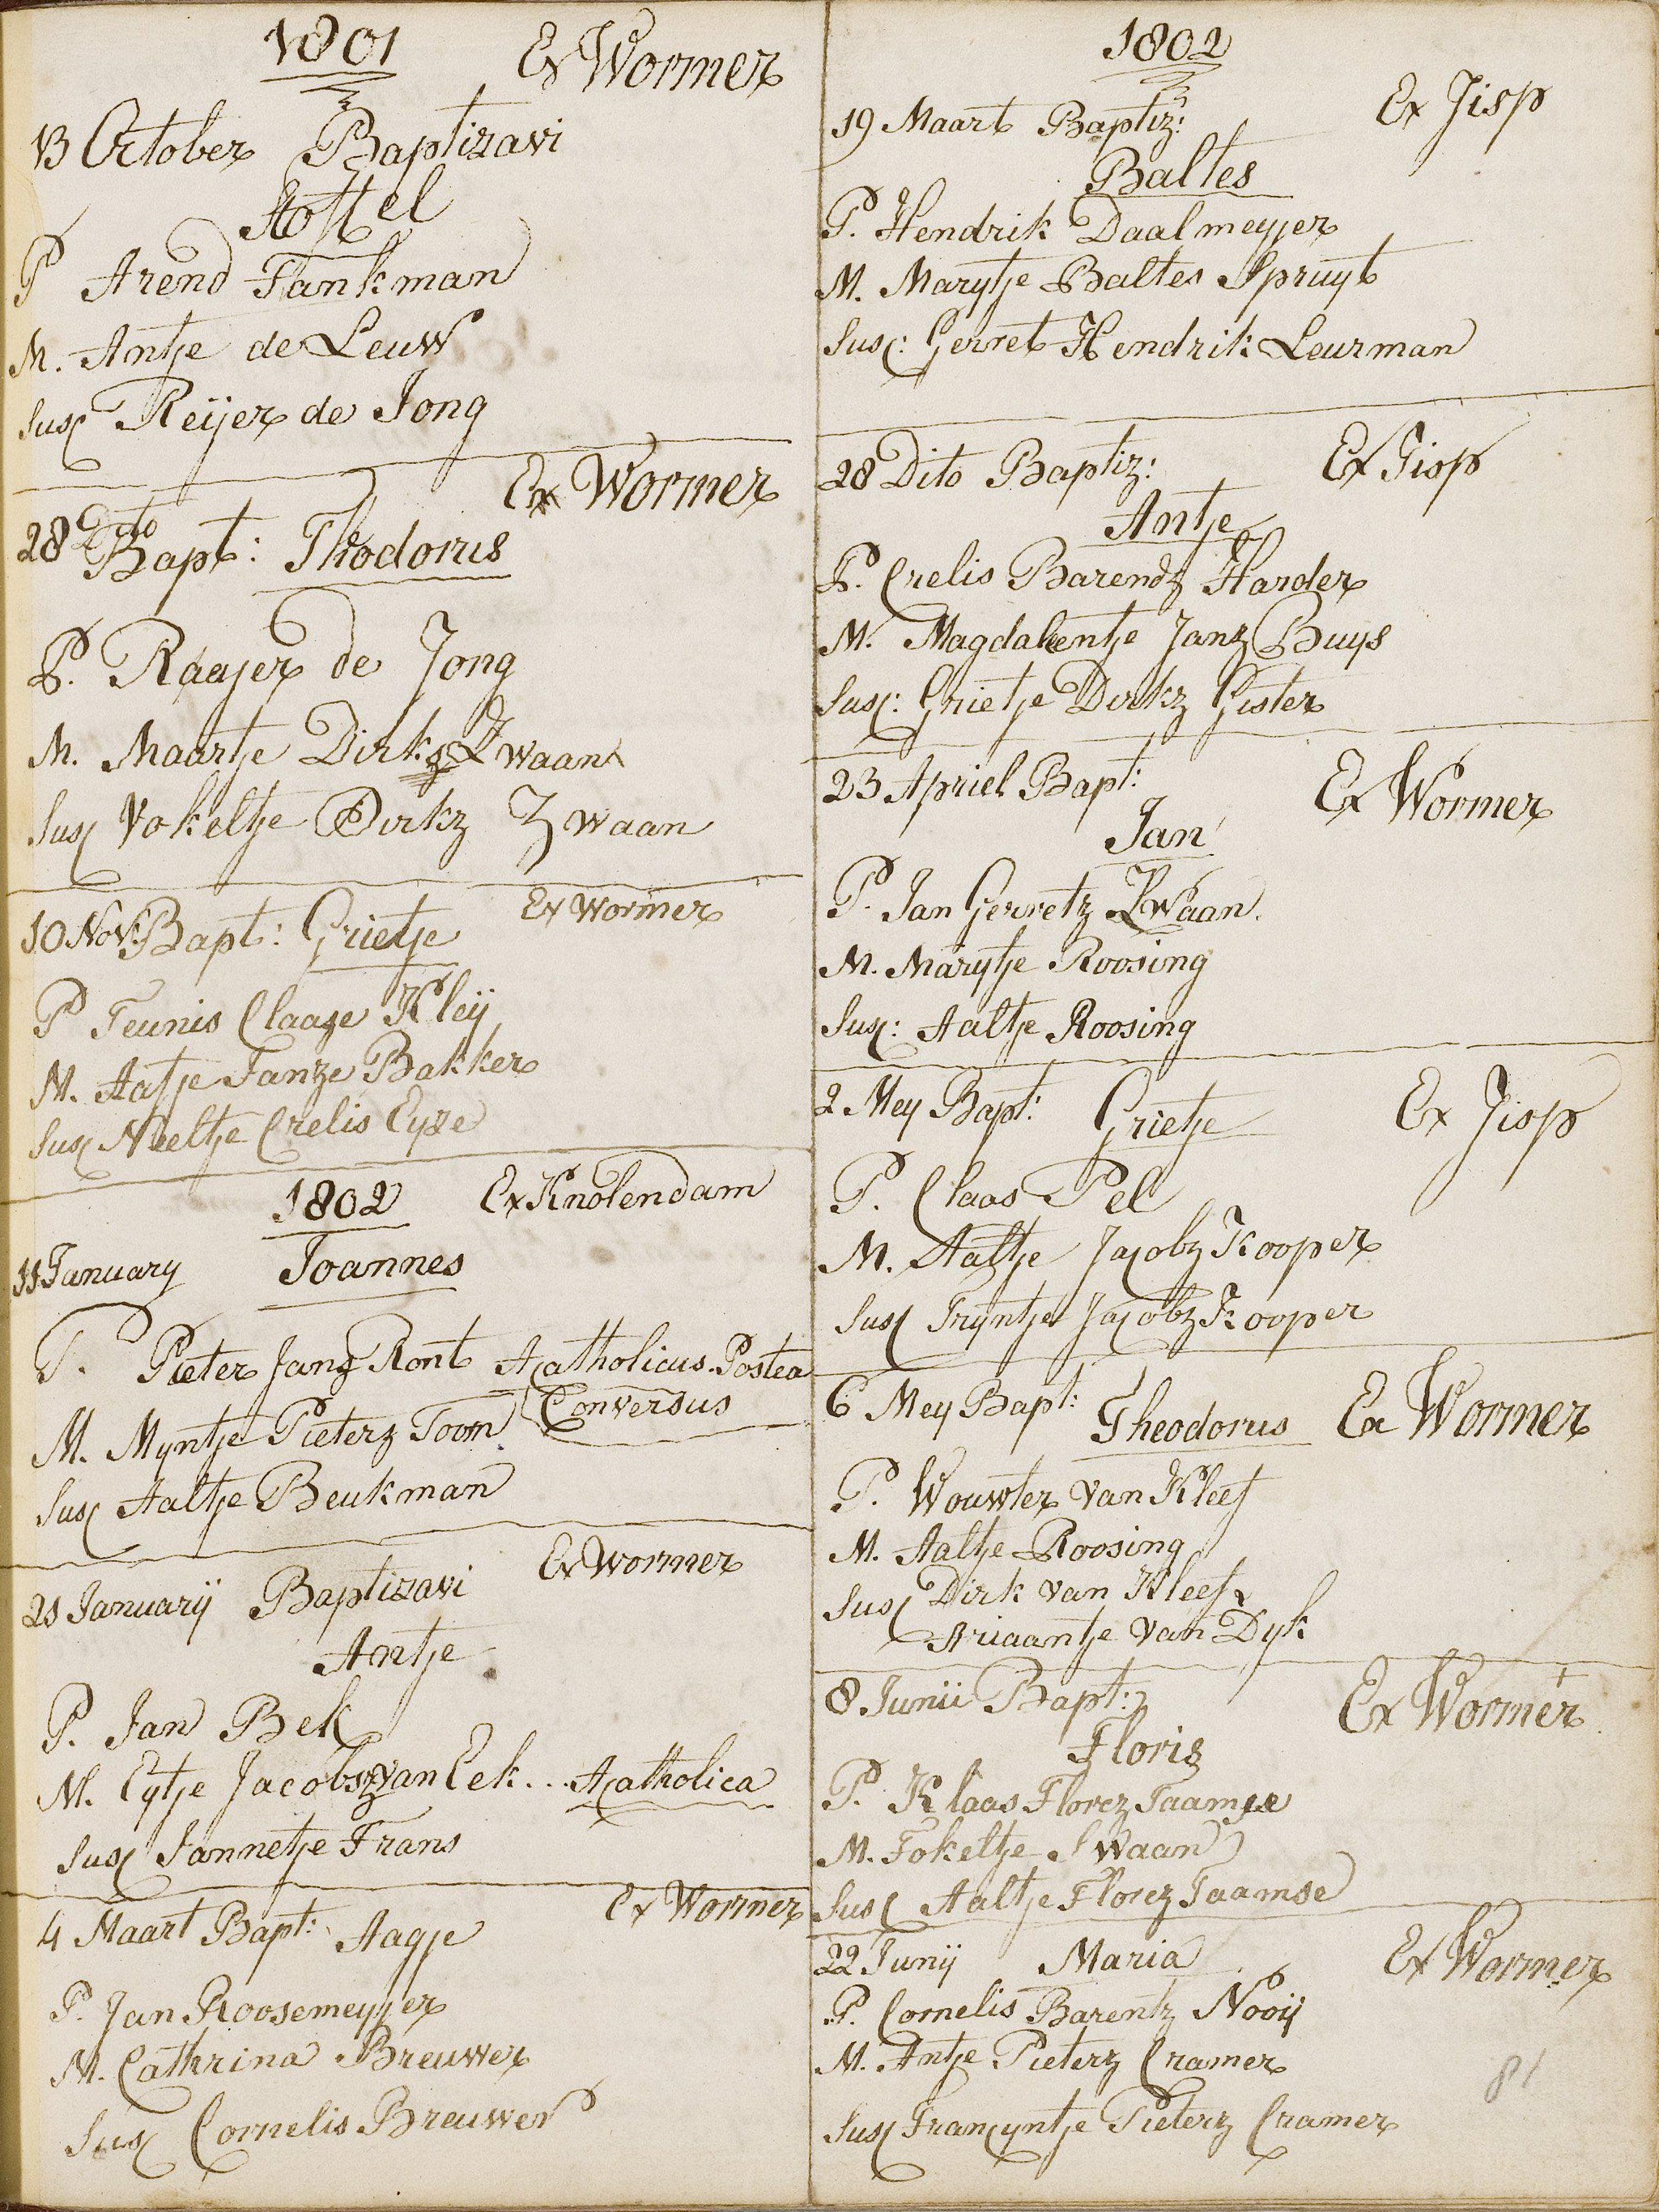 1801
Ex Wormer
13 October Baptizavi
Stoffel
P Arend Tankman
M. Antje de Leuw
Susc Reijer de Jong
Ex Wormer
28 Dito
Bapt: Thodorus
P. Raajer de Jong
M. Maartje Dirks Zwaan
Susc Vokeltje Dirkz Zwaan
10 Nov: Bapt: Grietje Ex Wormer
P Teunis Claaze Kleij
M. Aatje Janze Bakker
Susc Neeltje Crelis Eyze
1802 Ex Knolendam
11 January Joannes
P. Pieter Janz Ront Acatholicus Postea
Conversus
M. Myntje Pieterz Toom
Susc Aaltje Beukman
Ex Wormer
21 Januarij Baptizavi
Antje
P. Jan Bek
M. Eytje Jacobsz van Eek... Acatholica
Susc Jannetje Frans
4 Maart Bapt: Aagje Ex Wormer
P. Jan Roosemeyjer
M. Cathrina Breuwer
Susc Cornelis Breuwer
1802
19 Maart Baptiz: Ex Jisp
Baltes
P. Hendrik Daalmeyjer
M. Marytje Baltes Spruyt
Susc: Gerret Hendrik Leurman
28 Dito Baptiz: Ex Jisp
Antje
P. Crelis Barendz Harder
M. Magdalentje Janz Buys
Susc: Grietje Dirkz Gister
23 Apriel Bapt: Ex Wormer
Jan
P. Jan Gerretz Zwaan
M. Marytje Roosing
Susc: Aaltje Roosing
2 Mey Bapt: Grietje Ex Jisp
P. Claas Pel
M. Aaltje Jacobz Kooper
Susc Tryntje Jacobz Kooper
6 Mey Bapt: Theodorus Ex Wormer
P. Wouwter van Kleef
M. Aaltje Roosing
Susc Dirk van Kleef
Ariaantje van Dyk
8 Junii Bapt: Ex Wormer
Floris
P. Klaas Florez Taamse
M. Fokeltje Swaan
Susc Aaltje Florez Taamse
22 Junij Maria Ex Wormer
P. Cornelis Barentz Nooij
M. Antje Pieterz Cramer
Susc Francyntje Pieterz Cramer
81